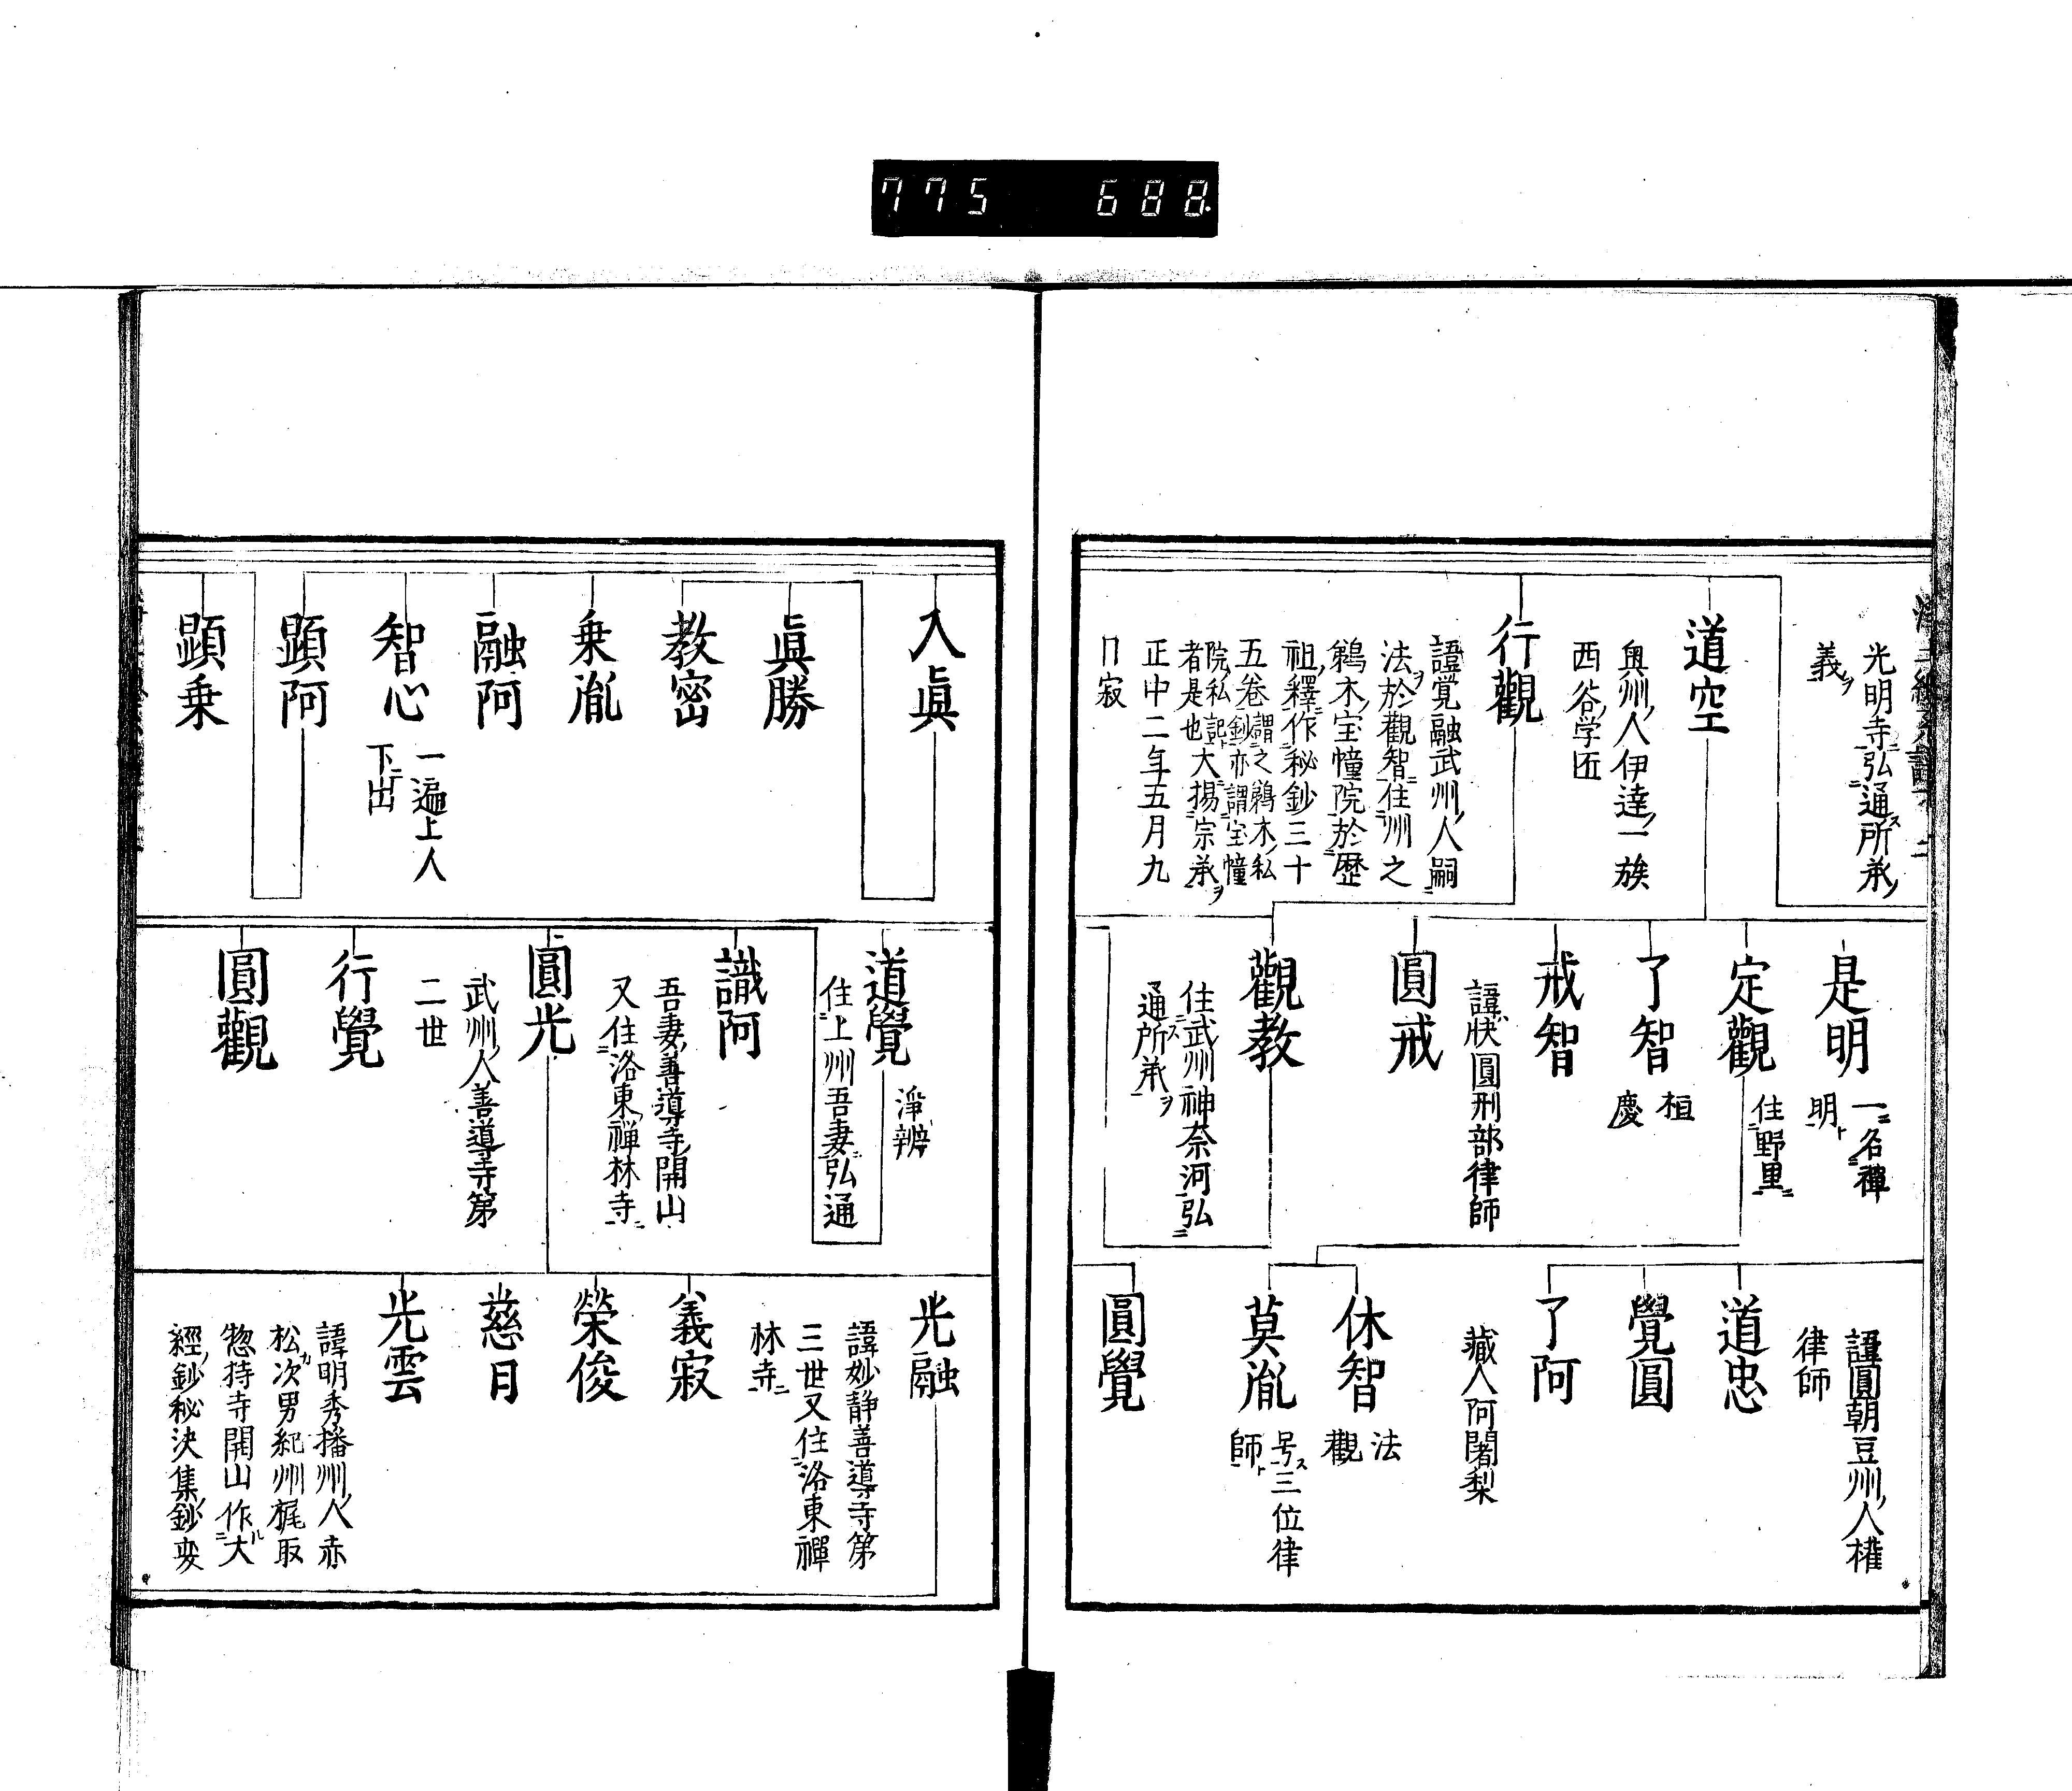 775 688
光明寺ニ弘通ス所承ノ
義ヲ
道空
奥州ノ人伊達ノ一族
西谷ノ学匠
行觀
諱覚融武州ノ人嗣ニ
法ヲ於觀智ニ住ニ州之
鵜木ノ宝幢院ニ於歴
祖ノ釋ニ作秘鈔三十
五巻謂之鵜木ノ私
鈔亦謂宝幢
院ノ私記ト
者是也大ニ揚ニ宗承ヲ
正中二年五月九
日寂
是明
一ニ名禪
明ト
定觀
住野里ニ
了智
桓
慶
戒智
諱快圓刑部律師
圓戒
觀教
住武州神奈河弘ニ
通ス所承ヲ
諱圓朝豆州ノ人權
律師
道忠
覺圓
了阿
藏人阿闍梨
休智
法
觀
莫胤
号ス三位律
師ト
圓覺
入眞
眞勝
教密
乗胤
融阿
智心
一遍上人
下ニ出
顕阿
顕乗
道覺
淨辨
住ニ上州吾妻ニ弘通
識阿
吾妻善導寺ノ開山
又住ニ洛東ノ禪林寺ニ
圓光
武州ノ人善導寺第
二世
行覺
圓觀
光融
諱妙静善導寺第
三世又住ニ洛東禪
林寺ニ
義寂
榮俊
慈日
光雲
諱明秀播州ノ人赤
松カ次男紀州梶取
惣持寺開山作ル大
經ノ鈔秘決集ノ鈔ニ安